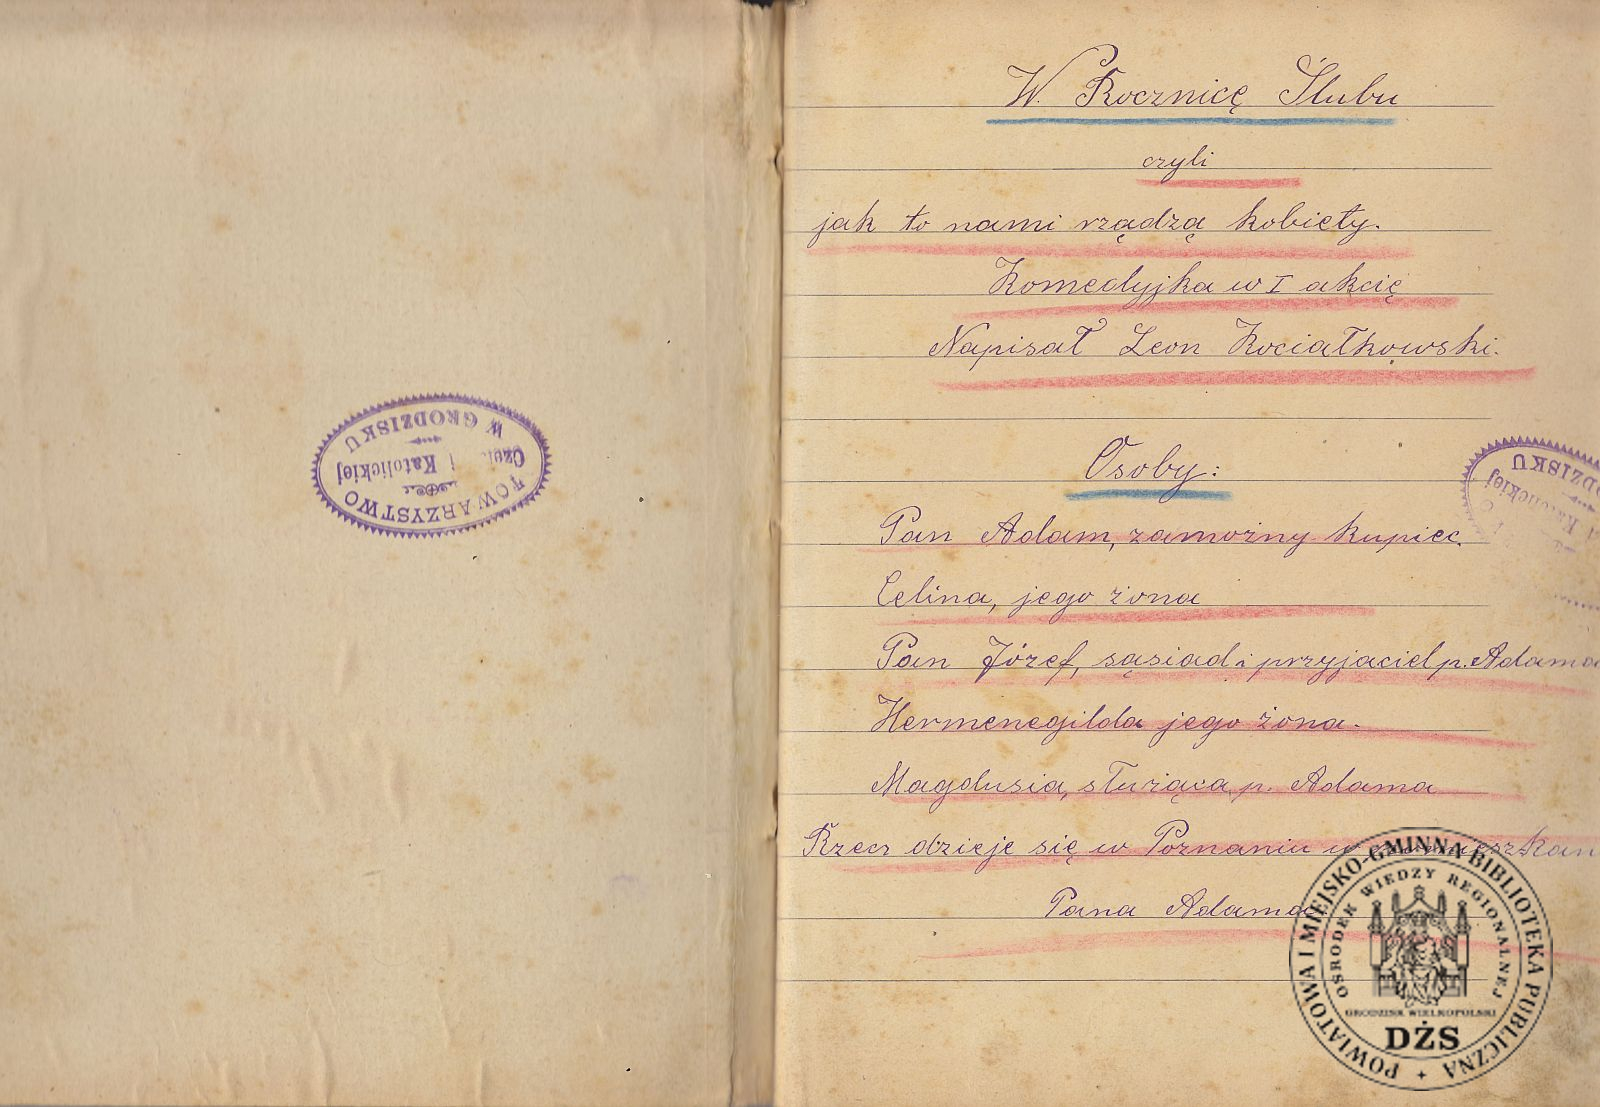 TOWARZYSTWO
i Katolickiej
W GRODZISKU
W Rocznicę Ślubu
czyli
jak to nami rządzą kobiety.
Komedyjka w I akcię
Napisał Leon Kociałkowski.
Osoby:
Pan Adam, zamożny kupiec.
Celina, jego żona
Pan Józef, sąsiad i przyjaciel p. Adama
Hermenegilda jego żona.
Magdusia, służąca p. Adama
Rzecz dzieje się w Poznaniu w
Pana Adama.
Katolickiej
POWIATOWA I MIEJSKO-GMINNA BIBLIOTEKA PUBLICZNA
OŚRODEK WIEDZY REGIONALNEJ
GRODZISK WIELKOPOLSKI
DŻS